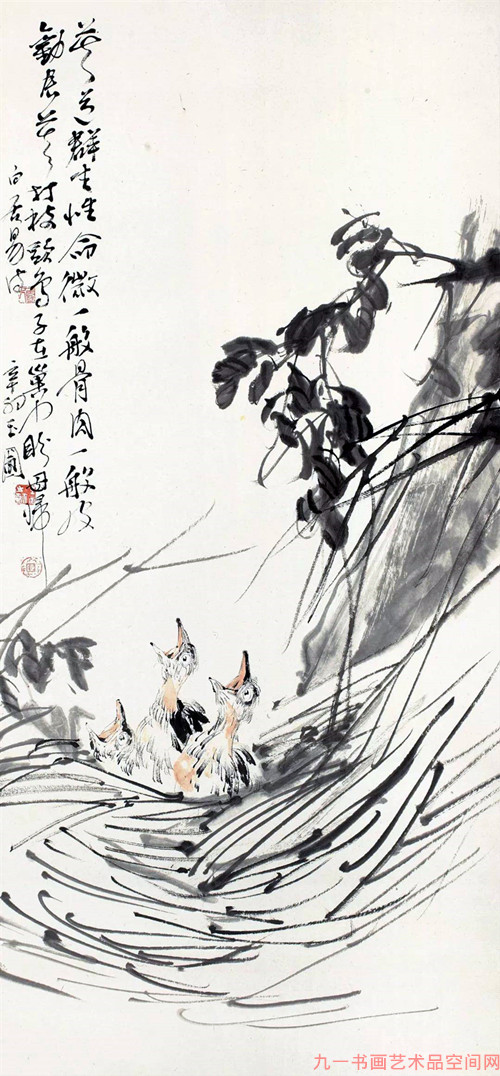 莫道群生性命微一般骨肉一般皮
勸君莫打枝頭鳥子在巢中盼母歸
白居易诗
九一书画艺术品空间网